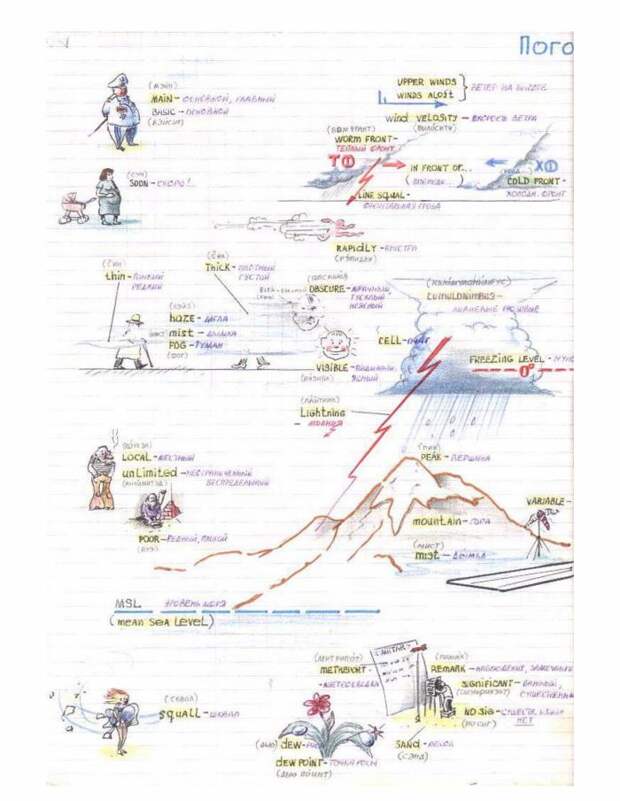 Пого
(мэйн)
MAIN - ОСНОВНОЙ, ГЛАВНЫЙ
BASIC - ОСНОВНОЙ
(БЭЙСИК)
UPPER WINDS
WINDS ALOft
ВЕТЕР НА ВЫСОТЕ
wind VELOSITY - СКОРОСТЬ ВЕТРА
(ВИЛОСИТИ)
WORM FRONT-
ТЕПЛЫЙ ФРОНТ
T
IN FRONT OF...
(ВПЕРЕДИ...)
X
COLD FRONT-
ХОЛОДН. ФРОНТ
LINE SQUAL -
ФРОНТАЛЬНАЯ ГРОЗА
(СУН)
SOON - СКОРО!
RAPIDLY - БЫСТРО
(РЭПИДЛИ)
thin - ТОНКИЙ
РЕДКИЙ
Thick - ПЛОТНЫЙ
ГУСТОЙ
OBSCURE - МРАЧНЫЙ
ТУСКЛЫЙ
НЕЯСНЫЙ
(ХЭЙЗ)
haze - МГЛА
mist - ДЫМКА
FOG - ТУМАН
(ФОГ)
VISIBLE - ВИДИМЫЙ
ЯСНЫЙ
CUMULONIMBUS -
CELL - ОЧАГ
FREEZING LEVEL -
0°
(ЛАЙТНИН)
Lightning
- МОЛНИЯ
LOCAL - МЕСТНЫЙ
unLimited - НЕОГРАНИЧЕННЫЙ
БЕСПРЕДЕЛЬНЫЙ
POOR - БЕДНЫЙ, ПЛОХОЙ
(ПУЭ)
(ПИК)
PEAK - ВЕРШИНА
mountain - ГОРА
VARIABLE -
(МИСТ)
mist - ДЫМКА
MSL УРОВЕНЬ МОРЯ
(mean SEA LEVEL)
(СКВОЛ)
SQUALL - ШКВАЛ
METREPORT -
МЕТЕОСВОДКА
REMARK - НАБЛЮДЕНИЕ, ЗАМЕЧАНИЕ
SIGNIFICANT - ВАЖНЫЙ,
NO SIG -
(НОУ СИГ)
НЕТ
(ДЬЮ) DEW - РОСА
DEW POINT - ТОЧКА РОСЫ
(ДЬЮ ПОИНТ)
SAND - ПЕСОК
(СЭНД)